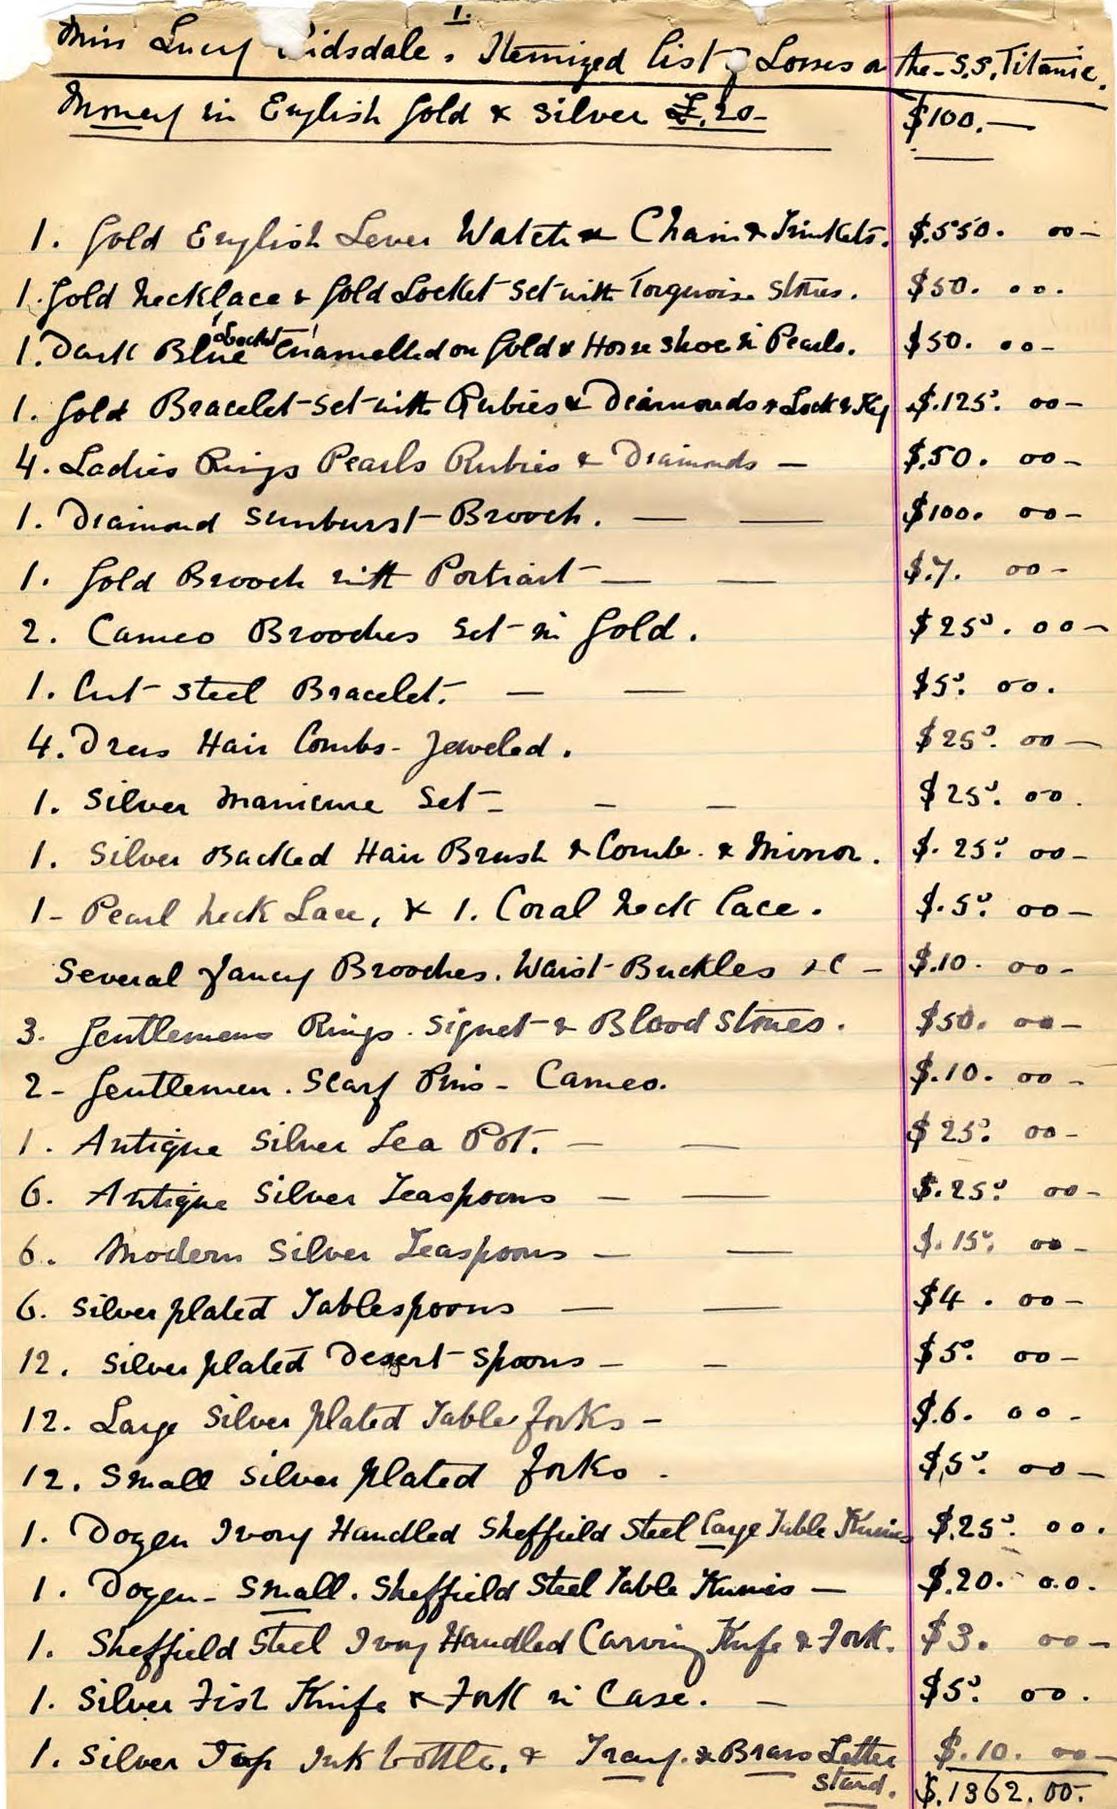 1.
Miss Lucy Ridsdale. Itemized list of Losses on the S.S. Titanic.
Money in English Gold & Silver £.20- $100.—
1. Gold English Lever Watch & Chain & Trinkets. $.550. 00-
1. Gold Necklace & Gold Locket Set with Torquoise Stones. $50. 00.
'Locket'
1. Dark Blue Enamelled on Gold & Horse shoe in Pearls. $50. 00-
1. Gold Bracelet Set with Rubies & Diamonds & Lock & Key $.125. 00-
4. Ladies Rings Pearls Rubies & Diamonds — $.50. 00-
1. Diamond Sunburst Brooch. — — $100. 00-
1. Gold Brooch with Portrait — — $.7. 00-
2. Cameo Brooches Set in Gold. $25. 00-
1. Cut Steel Bracelet. — — $5. 00.
4. Dress Hair Combs- Jeweled. $25. 00-
1. Silver Manicure Set - - - $25. 00.
1. Silver Backed Hair Brush & Comb. & Mirror. $. 25. 00-
1- Pearl Neck Lace, & 1. Coral Neck lace. $. 5. 00-
Several fancy Brooches. Waist Buckles &c - $.10. 00-
3. Gentlemens Rings. Signet & Blood Stones. $50. 00-
2- Gentlemen. Scarf Pins- Cameo. $.10. 00-
1. Antique Silver Tea Pot. — — $25. 00-
6. Antique Silver Teaspoons — — $.25. 00-
6. Modern Silver Teaspoons — — $.15. 00-
6. Silver plated Tablespoons — — $4. 00-
12. Silver plated Desert Spoons - - $5. 00-
12. Large Silver plated Table forks - $.6. 00-
12. Small Silver plated forks. $5. 00-
1. Dozen Ivory Handled Sheffield Steel large Table Knives $.25. 00.
1. Dozen- Small. Sheffield Steel Table Knives — $.20. 00.
1. Sheffield Steel Ivory Handled Carving Knife & Fork. $3. 00-
1. Silver Fish Knife & Fork in Case. — $5. 00.
1. Silver Top Ink bottle. & Tray. & Brass Letter $.10. 00-
stand. $.1362.00.